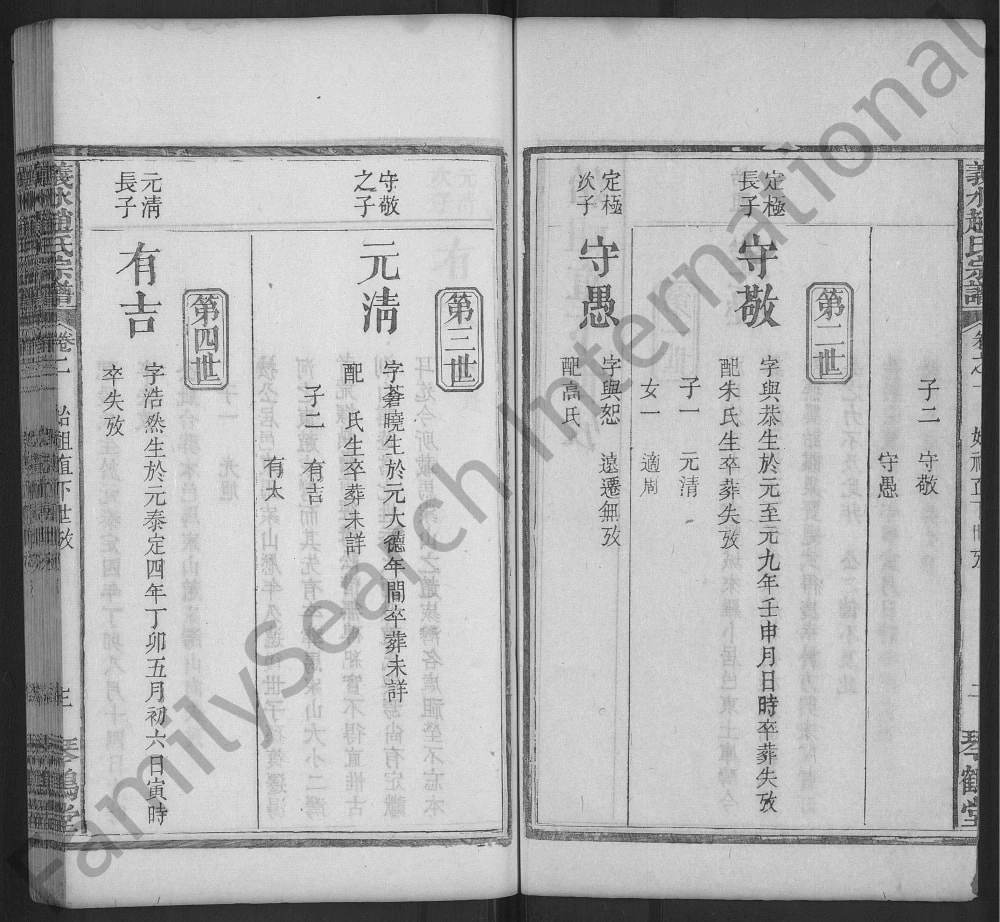 義水趙氏宗譜
琴鶴堂
子二 守敬
守愚
第二世
定極
長子
守敬
字與恭生於元至元九年壬申月日時卒葬失攷
配朱氏生卒葬失攷
子一 元清
女一 適周
定極
次子
守愚
字與恕 遠遷無攷
配高氏
第三世
守敬
之子
元清
字蒼曉生於元大德年間卒葬未詳
配 氏生卒葬未詳
子二 有吉
有太
第四世
元清
長子
有吉
字浩然生於元泰定四年丁卯五月初六日寅時
卒失攷
義水趙氏宗譜
卷一 始祖直下世攷
琴鶴堂
FamilySearch International